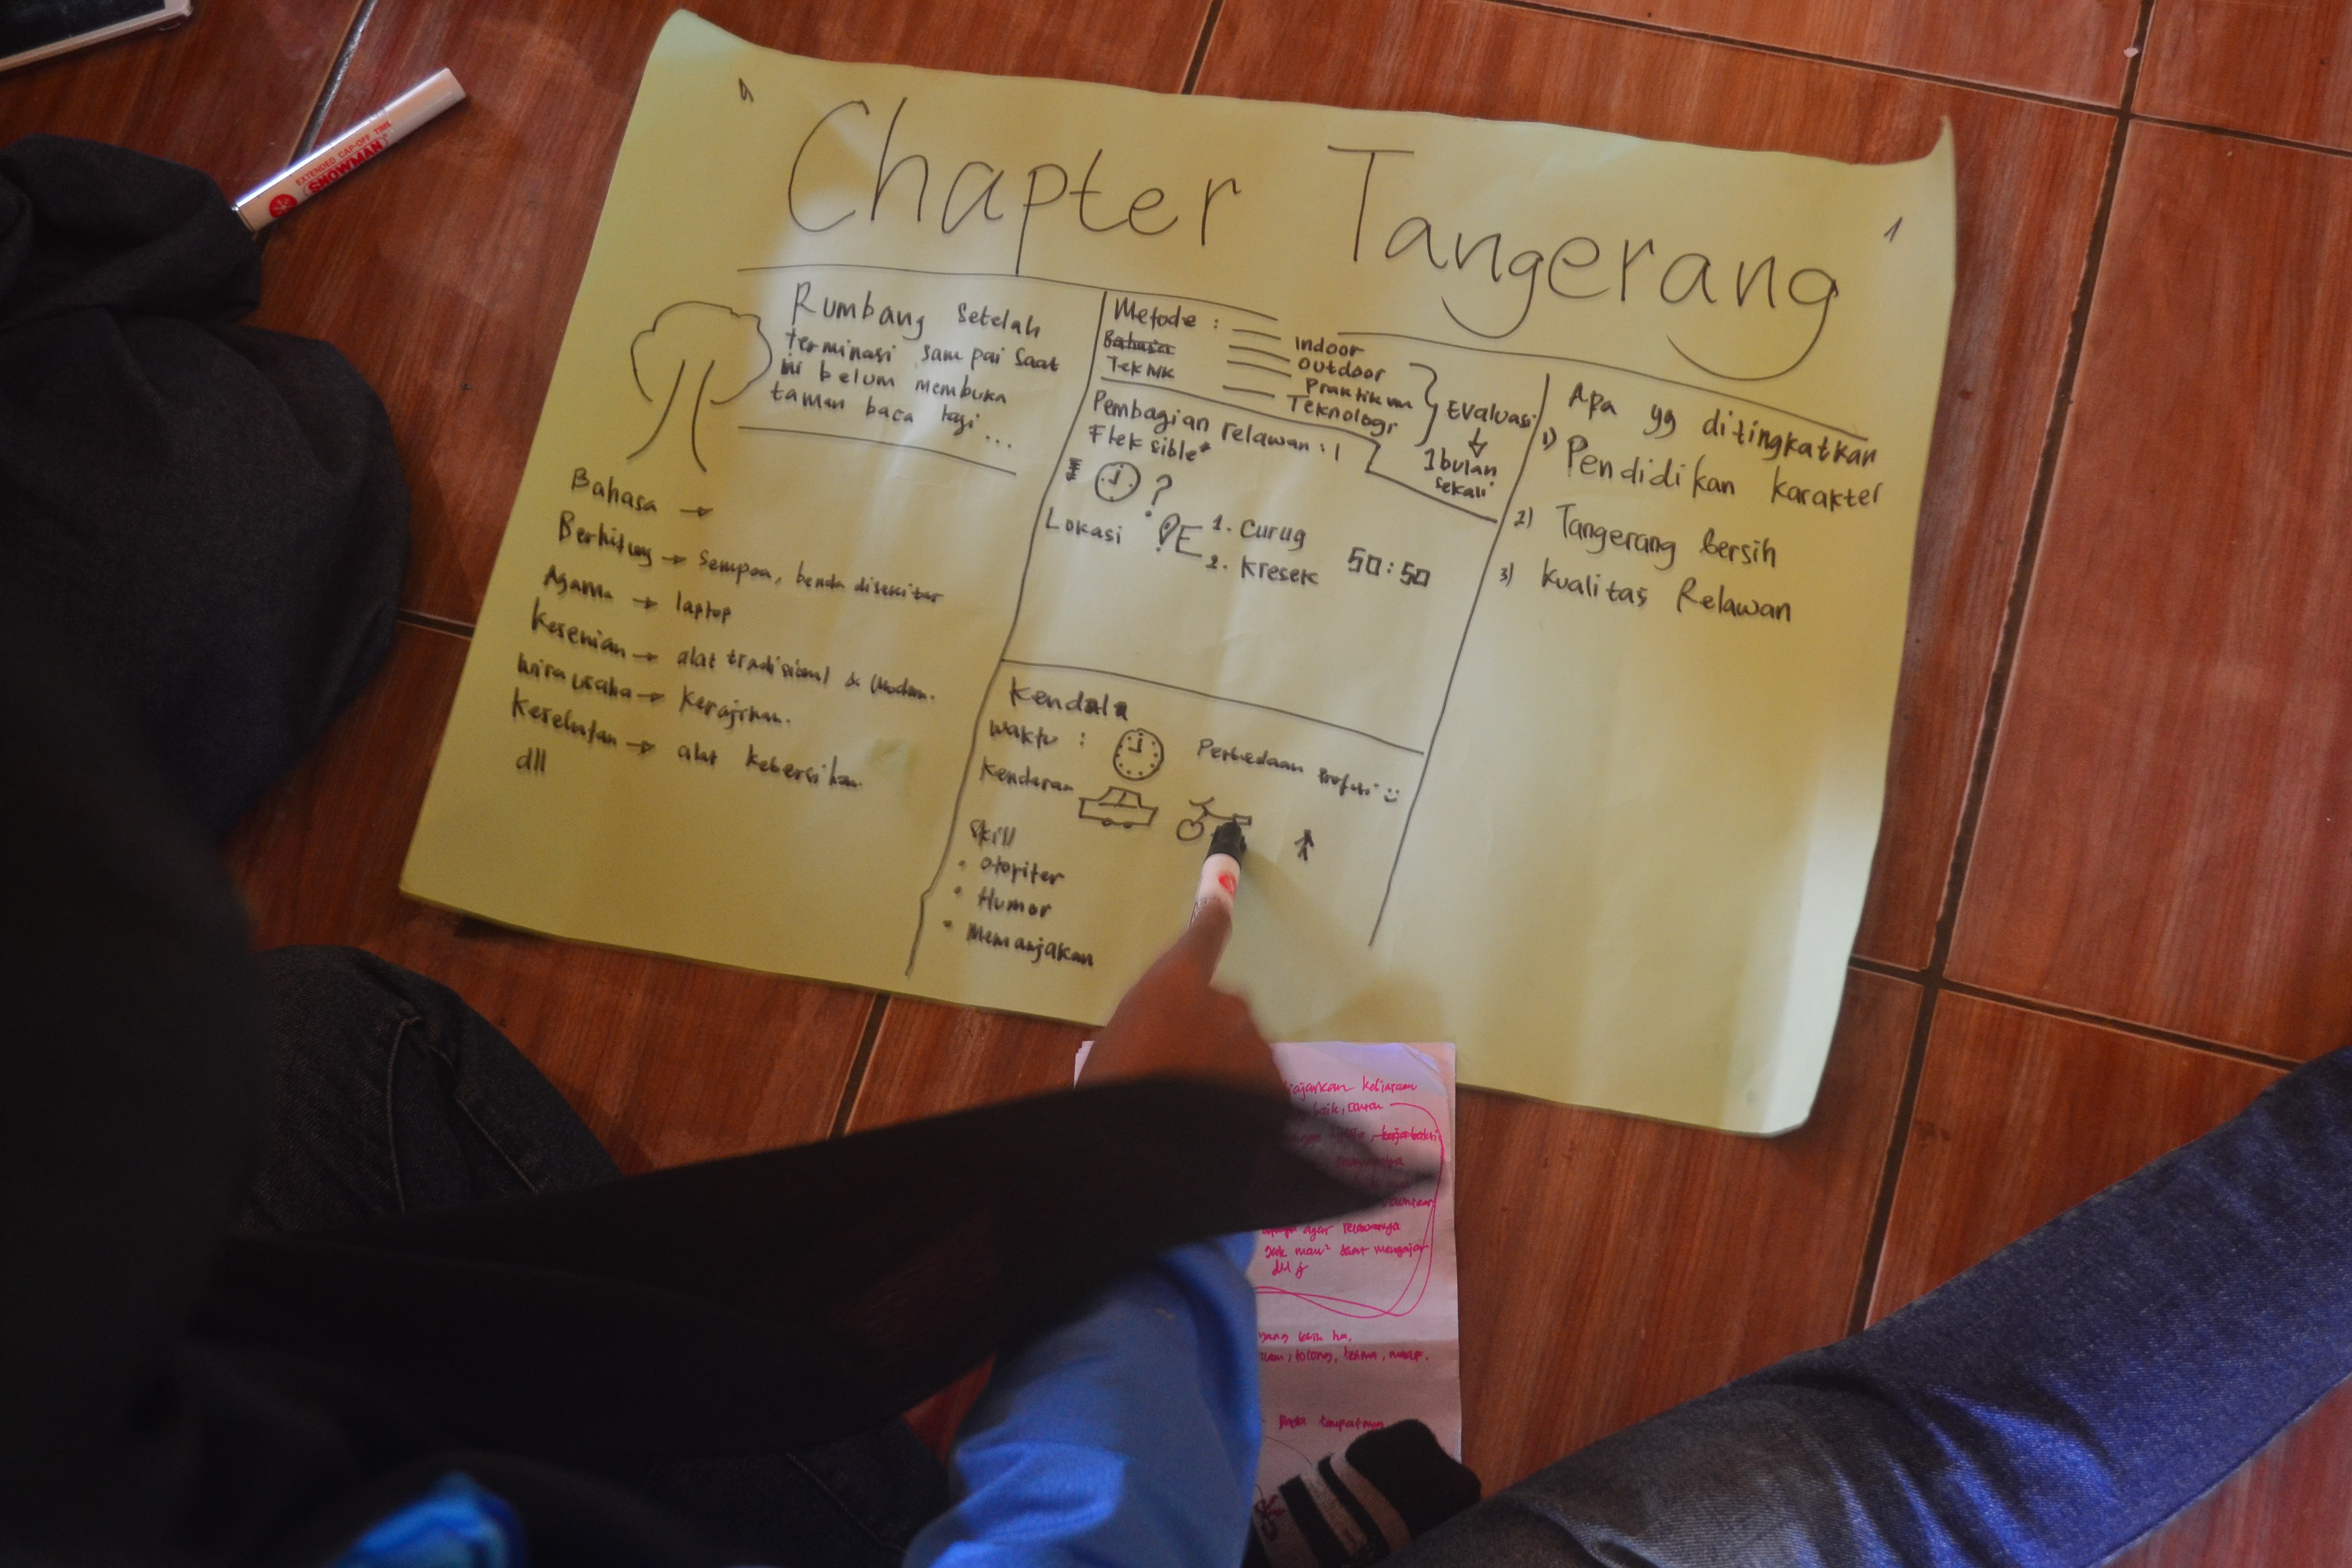 EXTENDED CAP-OFF TIME
SNOWMAN
" Chapter Tangerang "
Rumbang setelah
terminasi sampai saat
ini belum membuka
taman baca lagi...
Bahasa →
Berhitung → sempoa, benda disekitar
Agama → laptop
Kesenian → alat tradisional & modern.
wira usaha → kerajinan.
Kesehatan → alat kebersihan.
dll
Metode :
Bahasa
Teknik
Indoor
Outdoor
Praktikum
Teknologi
Evaluasi
1 bulan
sekali
Pembagian relawan :
Fleksible*
?
Lokasi
1. Curug
2. Kresek
50:50
Kendala
waktu :
Perbedaan Profesi
Kendaraan
Skill
• Otoriter
• Humor
• Memanjakan
Apa yg ditingkatkan
1) Pendidikan karakter
2) Tangerang bersih
3) Kualitas Relawan
baik, contoh
kerja bakti
agar relawannya
saat mengajar
dll
yang lebih
tolong, terima, maaf.
Pada tempatnya